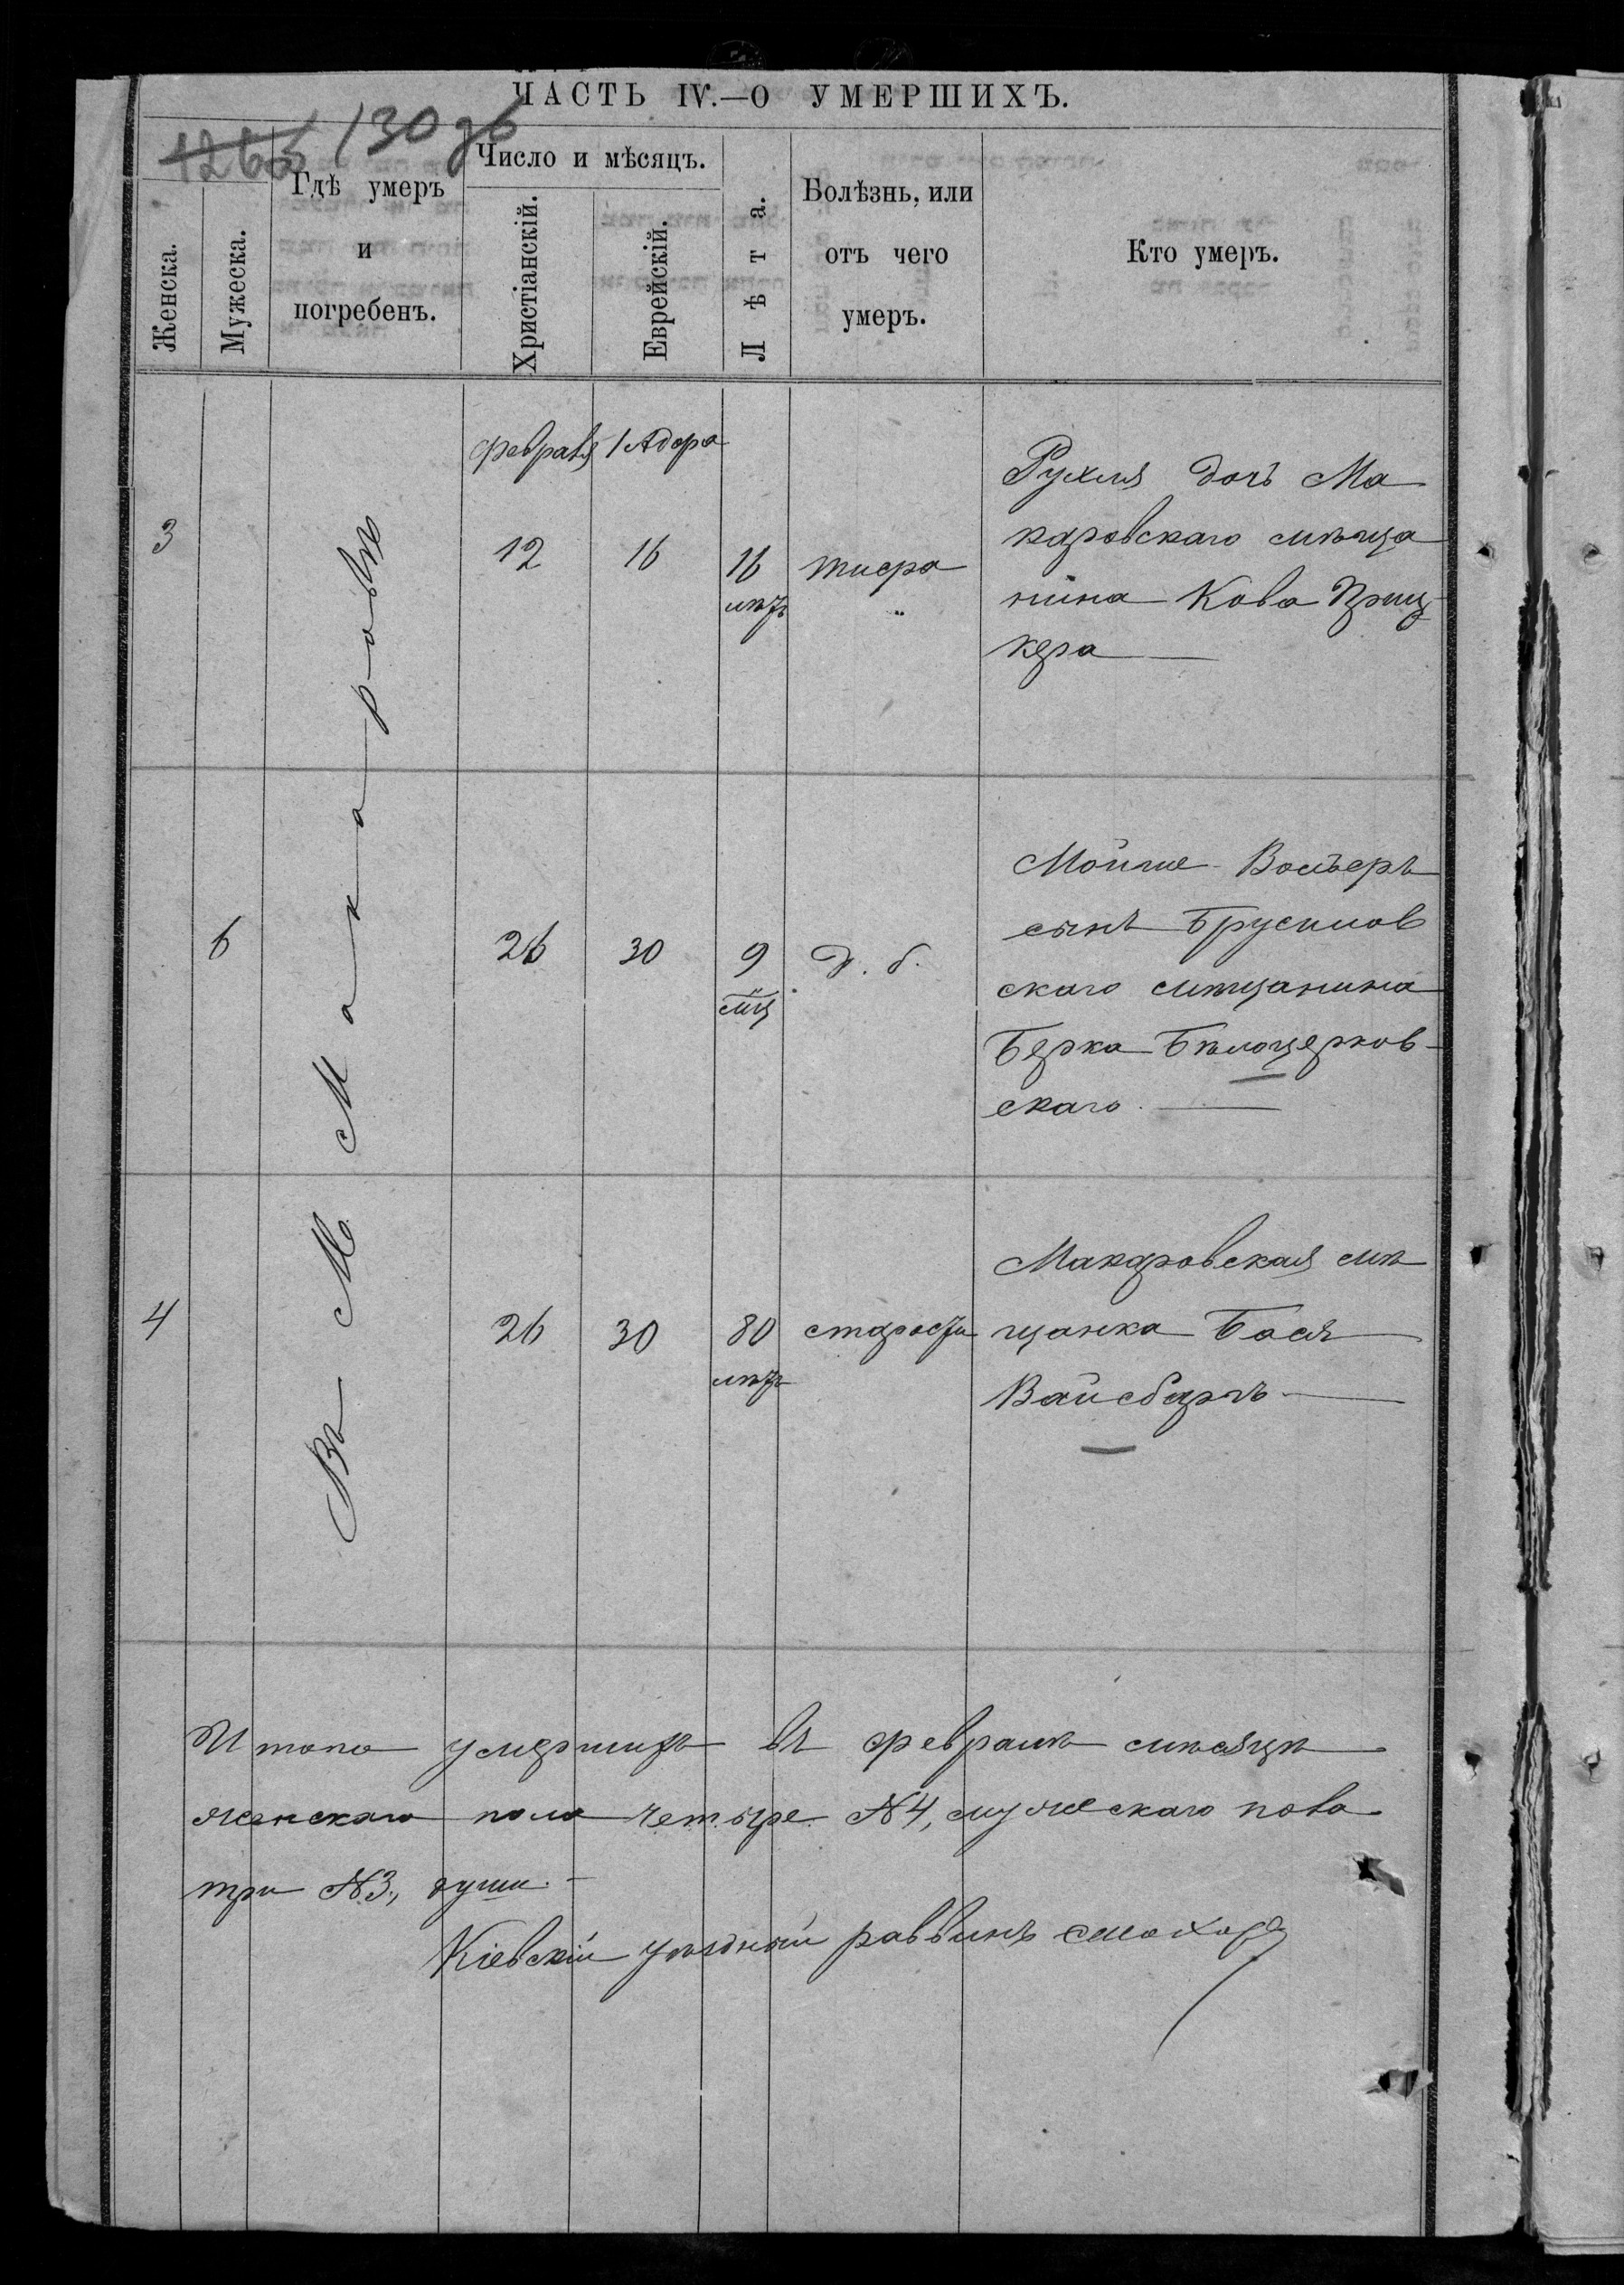 ЧАСТЬ IV.—О УМЕРШИХЪ.
130 об
Женска.
Мужеска.
Гдѣ умеръ
и
погребенъ.
Число и мѣсяцъ.
Христіанскій.
Еврейскій.
Лѣта.
Болѣзнь, или
отъ чего
умеръ.
Кто умеръ.
Въ М Макаровѣ
Февраля 1 Адора
3 12 16 16
лѣтъ
Рухля дочь Ма
каровскаго мѣща
нина
кера
6 26 30 9
мц
д. б.
Мойше
сынъ Брусилов
скаго мѣщанина
Берка Бѣлоцерков-
скаго.
4 26 30 80
лѣтъ
старости
Макаровская мѣ
щанка Бася
Вайсбергъ
Итого умершихъ въ Февралѣ мѣсяцѣ
женскаго пола четыре N 4, мужескаго пола
три N 3, души.
Кіевскій уѣздный раввинъ